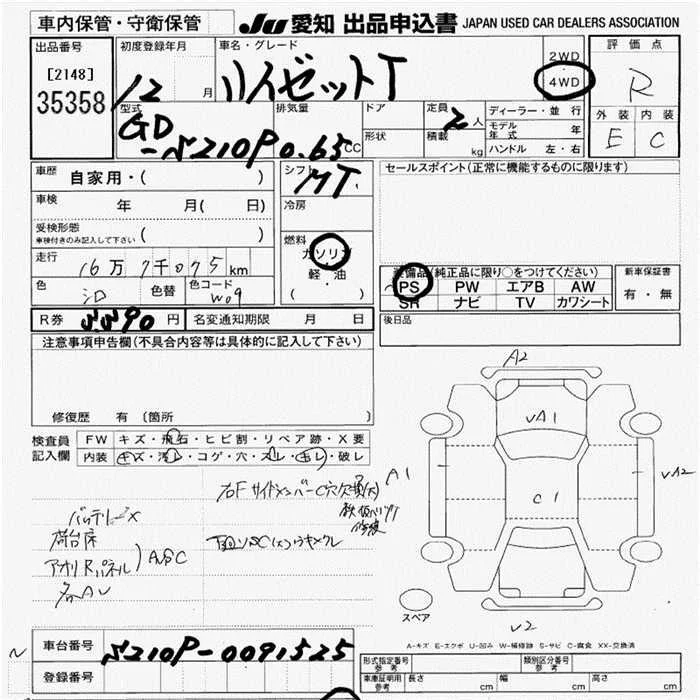 車内保管・守衛保管
JU 愛知 出品申込書 JAPAN USED CAR DEALERS ASSOCIATION
出品番号
[2148]
35358
初度登録年月
12 月
車名・グレード
ハイゼットT
2WD
4WD
評価点
R
外装 内装
E C
型式
GD
-S210P
排気量
0.65 CC
ドア
形状
定員
2 人
積載
kg
ディーラー・並行
モデル年式 年
ハンドル 左・右
車歴
自家用・( )
車検
年 月( 日)
受検形態
車検付きのみ記入して下さい ( )
走行
16万7千075 km
色
シロ
色替
色コード
W09
シフト
MT
冷房
燃料
ガソリン
・
軽・油
( )
セールスポイント(正常に機能するものに限ります)
装備品(純正品に限り○をつけてください)
PS PW エアB AW
SR ナビ TV カワシート
新車保証書
有・無
R券 5590 円 名変通知期限 月 日
後日品
注意事項申告欄(不具合内容等は具体的に記入して下さい)
修復歴 有 〔箇所
検査員
記入欄
FW キズ・飛石・ヒビ割・リペア跡・X要
内装 キズ・汚レ・コゲ・穴・スレ・キレ・破レ
右Fサイドメンバー
バッテリーX
荷台床
アオリRパネル
A2
VA1
A1
C1
VA2
V2
スペア
A-キズ E-エクボ U-凹み W-補修跡 S-サビ C-腐食 XX-交換済
車台番号 S210P-0091525
登録番号
形式指定番号
参考
類別区分番号
参考
車庫証明用
参考
長さ cm 幅 cm 高さ cm